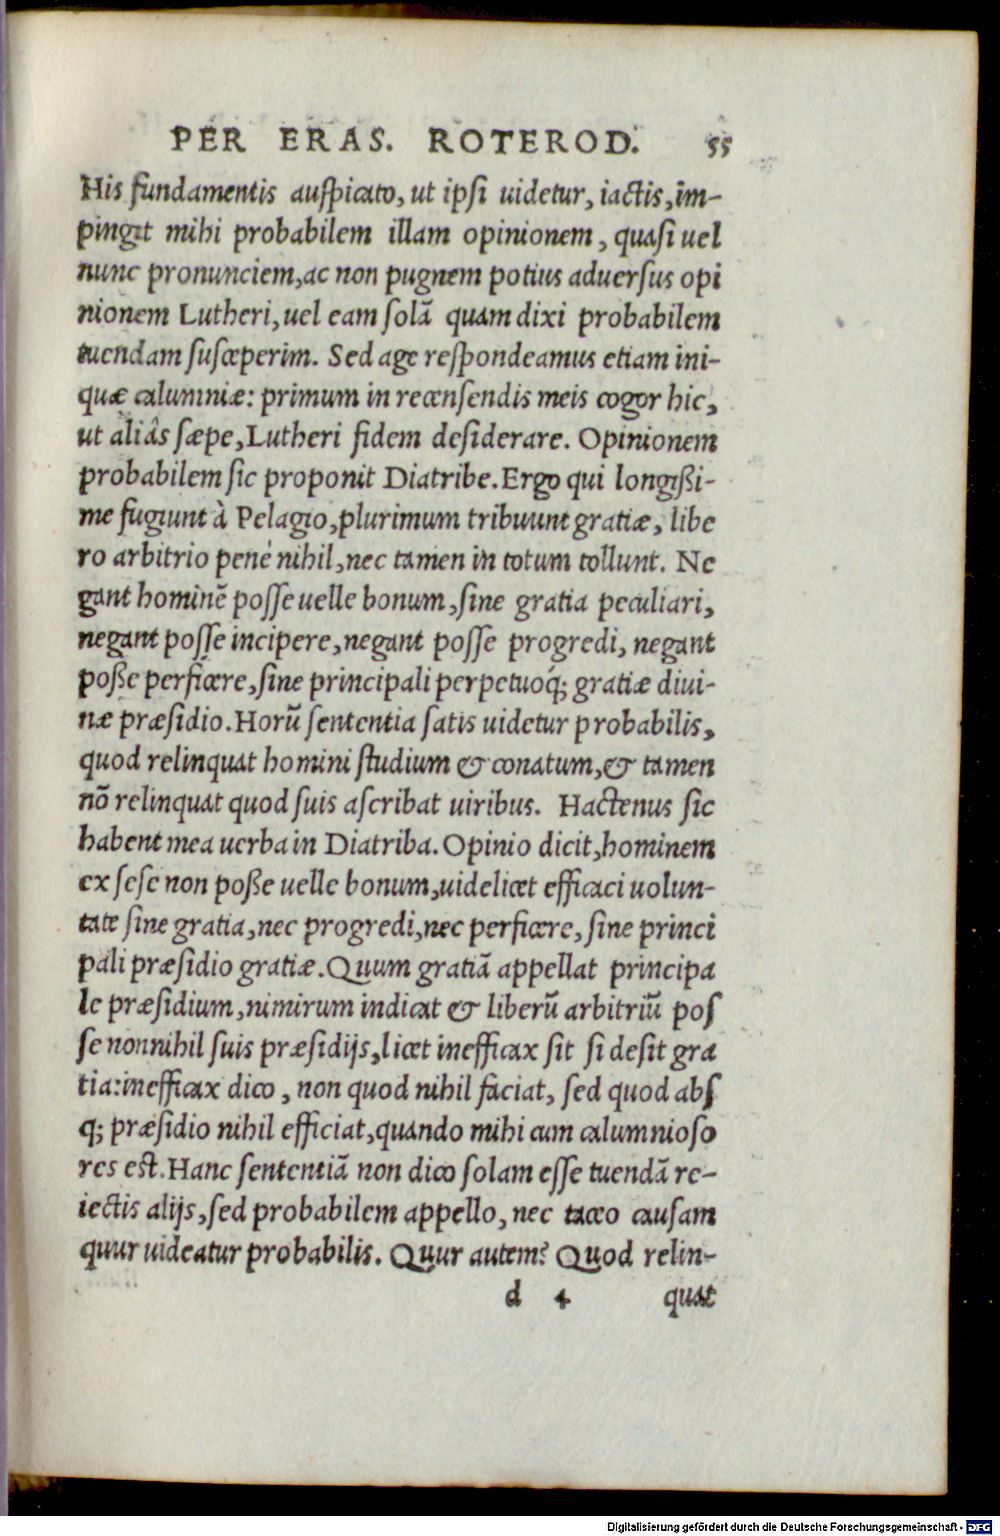 PER ERAS. ROTEROD. 55
His fundamentis auſpicato, ut ipſi uidetur, iactis, im-
pingit mihi probabilem illam opinionem, quaſi uel
nunc pronunciem, ac non pugnem potius aduerſus opi
nionem Lutheri, uel eam ſolā quam dixi probabilem
tuendam ſuſceperim. Sed age reſpondeamus etiam ini-
quæ calumniæ: primum in recenſendis meis cogor hic,
ut aliâs ſæpe, Lutheri fidem deſiderare. Opinionem
probabilem ſic proponit Diatribe. Ergo qui longißi-
me fugiunt à Pelagio, plurimum tribuunt gratiæ, libe
ro arbitrio penè nihil, nec tamen in totum tollunt. Ne
gant hominē poſſe uelle bonum, ſine gratia peculiari,
negant poſſe incipere, negant poſſe progredi, negant
poße perficere, ſine principali perpetuoq́; gratiæ diui-
næ præſidio. Horū ſententia ſatis uidetur probabilis,
quod relinquat homini ſtudium & conatum, & tamen
nō relinquat quod ſuis aſcribat uiribus. Hactenus ſic
habent mea uerba in Diatriba. Opinio dicit, hominem
ex ſeſe non poße uelle bonum, uidelicet efficaci uolun-
tate ſine gratia, nec progredi, nec perficere, ſine princi
pali præſidio gratiæ. Quum gratiā appellat principa
le præſidium, nimirum indicat & liberū arbitriū poſ
ſe nonnihil ſuis præſidijs, licet inefficax ſit ſi deſit gra
tia: inefficax dico, non quod nihil faciat, ſed quod abſ
q; præſidio nihil efficiat, quando mihi cum calumnioſo
res eſt. Hanc ſententiā non dico ſolam eſſe tuendā re-
iectis alijs, ſed probabilem appello, nec taceo cauſam
quur uideatur probabilis. Quur autem? Quod relin-
d 4 quat
Digitalisierung gefördert durch die Deutsche Forschungsgemeinschaft - DFG